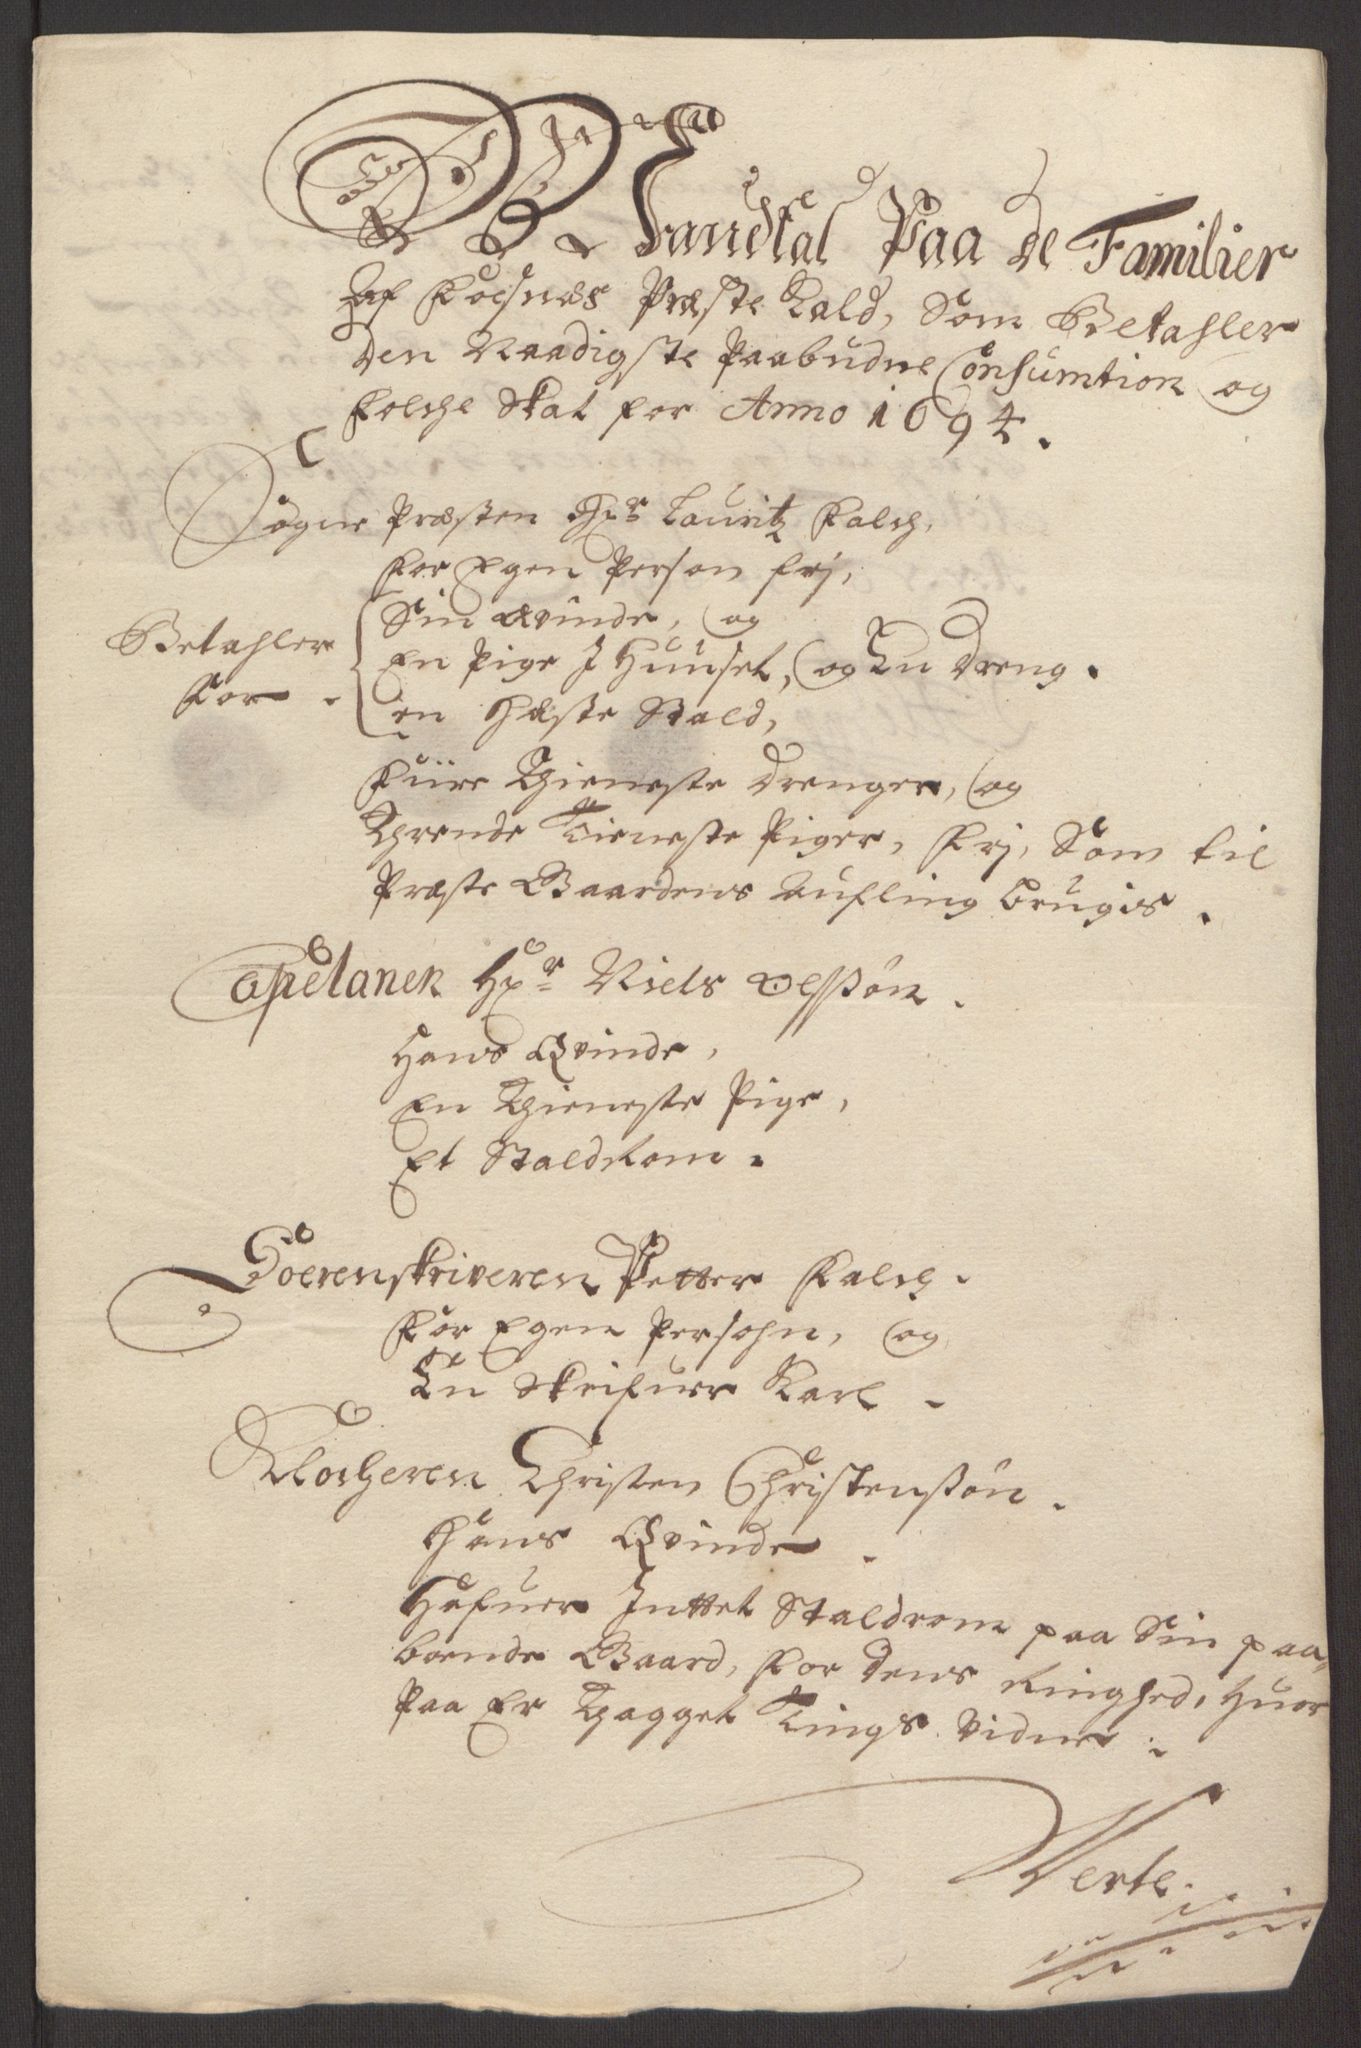 Mandtal Paa de Familier
Af Foesnæs Præste Kald, Som Betahler
den Naadigste Paabudne Consumtion og
Folche Skat for Anno 1694.
Sogne Præsten Hr Lauritz Falch,
For Egen Person frj,
Sin Qvinde, og
Betahler
En Pige J Huuset, og En dreng.
For
en Hæste Stald,
Fiire Thieneste drenger, og
Thrende Tieneste Piger, frj, Som til
Præste Gaardens Aufling brugis.
Capelanen Hr Niels Olssøn.
Hans Qvinde,
En Thieneste Pige,
Et Staldrom.
Soerenskriveren Petter Falch.
For Egen Persohn, og
En Skrifuer Karl.
Klocheren Christen Christensøn.
Hans Qvinde.
Hafuer Inttet Staldrom paa Sin paa,
boende Gaard, for dens Ringhed, Huor
Paa Er Thagget Tings Vidne.
Verte.